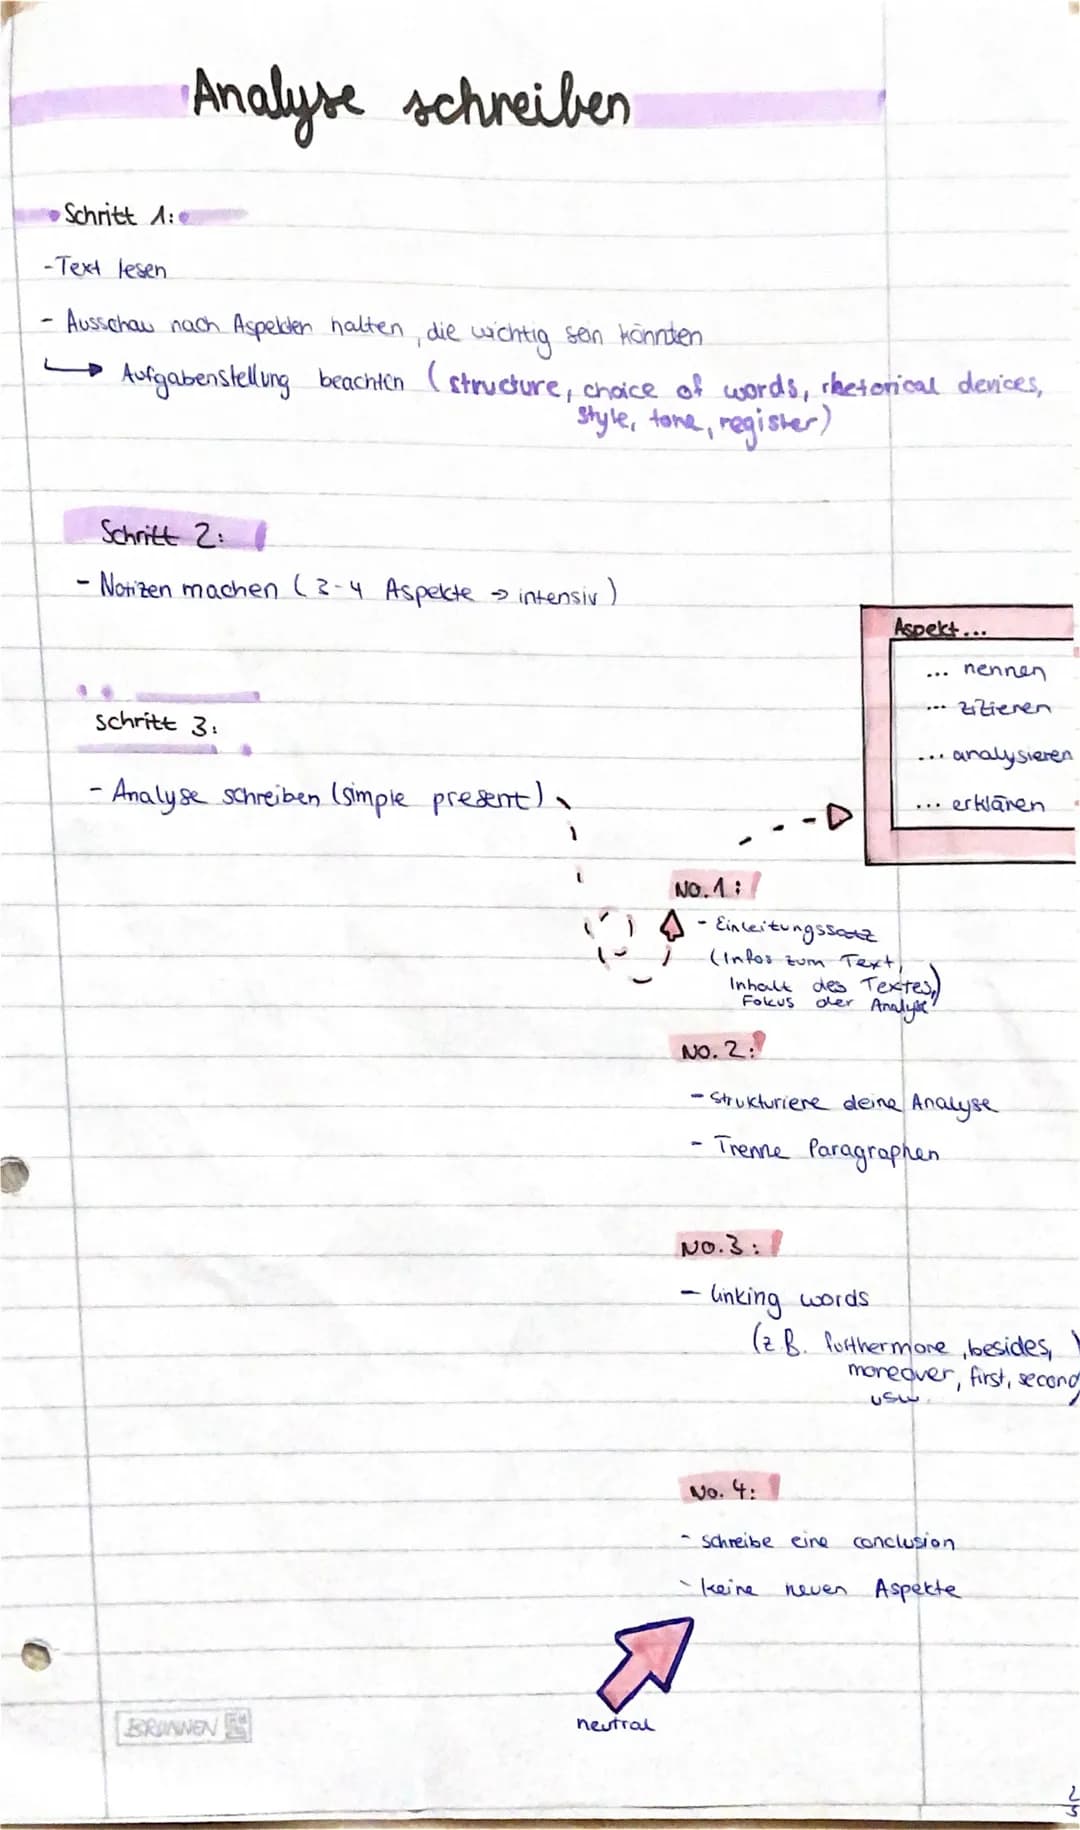 Analyse schreiben
Schritt 1:
- Text lesen
- Ausschau nach Aspekten halten, die wichtig sein könnten
Aufgabenstellung beachten (structure, choice of words, rhetorical devices,
style, tone, register)
Schritt 2:
- Notizen machen (3-4 Aspekte → intensiv)
Aspekt...
... nennen
... zitieren
... analysieren
... erklären
schritt 3:
- Analyse schreiben (simple present)
No. 1:
- Einleitungssatz
(Infos zum Text,
Inhalt des Textes,
Fokus der Analyse)
No. 2:
- Strukturiere deine Analyse
- Trenne Paragraphen
No. 3:
- linking words
(z.B. furthermore, besides,
moreover, first, second
usw.)
No. 4:
- schreibe eine conclusion
- keine neuen Aspekte
neutral
BRUNNEN